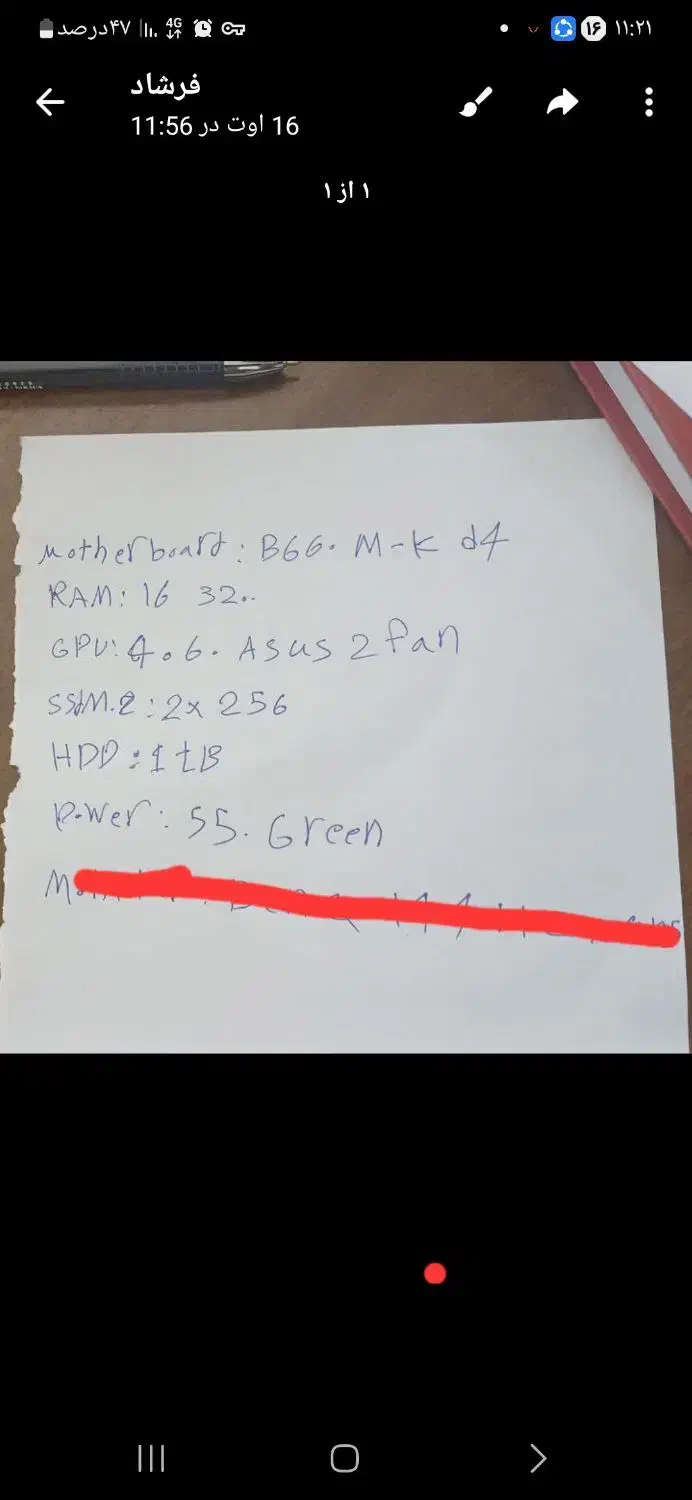 ۴۷درصد 4G ۱۶ ۱۱:۲۱
فرشاد
16 اوت در 11:56
۱ از ۱
Motherboard: B660 M-K d4
RAM: 16 3200
GPU: 4060 Asus 2 fan
SSD M.2: 2x 256
HDD: 1 tB
Power: 550 Green